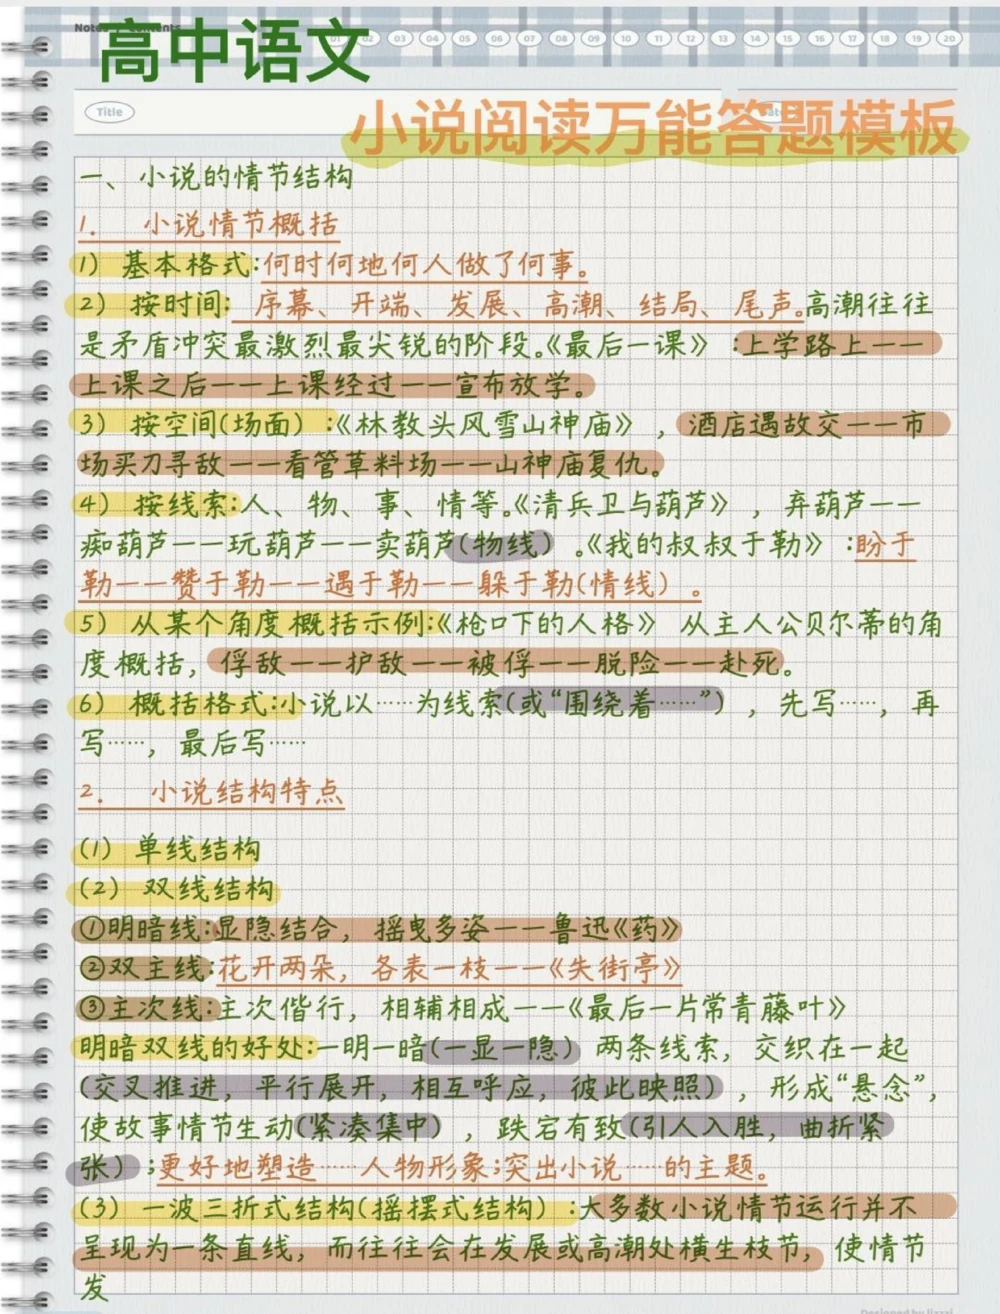 高中语文
01 02 03 04 05 06 07 08 09 10 11 12 13 14 15 16 17 18 19 20
Title
小说阅读万能答题模板
一、小说的情节结构
1. 小说情节概括
1) 基本格式:何时何地何人做了何事。
2) 按时间: 序幕、开端、发展、高潮、结局、尾声。高潮往往
是矛盾冲突最激烈最尖锐的阶段。《最后一课》:上学路上——
上课之后——上课经过——宣布放学。
3) 按空间(场面):《林教头风雪山神庙》,酒店遇故交——市
场买刀寻敌——看管草料场——山神庙复仇。
4) 按线索:人、物、事、情等。《清兵卫与葫芦》,弃葫芦——
痴葫芦——玩葫芦——卖葫芦(物线)。《我的叔叔于勒》:盼于
勒——赞于勒——遇于勒——躲于勒(情线)。
5) 从某个角度概括示例:《枪口下的人格》 从主人公贝尔蒂的角
度概括,俘敌——护敌——被俘——脱险——赴死。
6) 概括格式:小说以……为线索(或“围绕着……”),先写……,再
写……,最后写……
2. 小说结构特点
(1) 单线结构
(2) 双线结构
①明暗线:显隐结合,摇曳多姿——鲁迅《药》
②双主线:花开两朵,各表一枝——《失街亭》
③主次线:主次偕行,相辅相成——《最后一片常青藤叶》
明暗双线的好处:一明一暗(一显一隐)两条线索,交织在一起
(交叉推进,平行展开,相互呼应,彼此映照),形成“悬念”,
使故事情节生动(紧凑集中),跌宕有致(引人入胜,曲折紧
张);更好地塑造……人物形象;突出小说……的主题。
(3) 一波三折式结构(摇摆式结构):大多数小说情节运行并不
呈现为一条直线,而往往会在发展或高潮处横生枝节,使情节
发